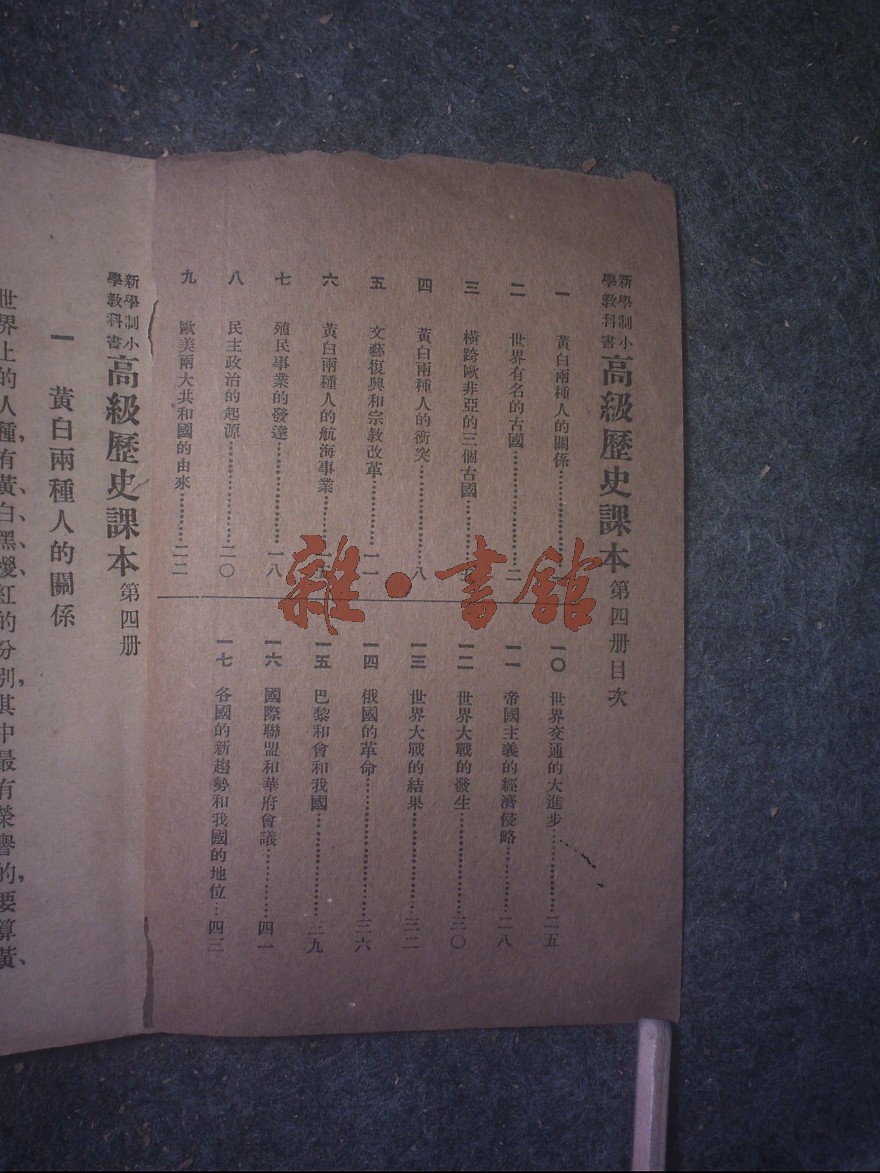 新學制小學教科書 高級歷史課本 第四册目次
一 黃白兩種人的關係
二 世界有名的古國 二
三 橫跨歐非亞的三個古國
四 黃白兩種人的衝突 八
五 文藝復興和宗教改革 一一
六 黃白兩種人的航海事業
七 殖民事業的發達 一八
八 民主政治的起源 二〇
九 歐美兩大共和國的由來 二二
一〇 世界交通的大進步 二五
一一 帝國主義的經濟侵略 二八
一二 世界大戰的發生 三〇
一三 世界大戰的結果 三二
一四 俄國的革命 三六
一五 巴黎和會和我國 三九
一六 國際聯盟和華府會議 四一
一七 各國的新趨勢和我國的地位 四三
新學制小學教科書 高級歷史課本 第四册
一 黃白兩種人的關係
世界上的人種，有黃、白、黑、椶、紅的分別，其中最有榮譽的，要算黃、
雜·書館